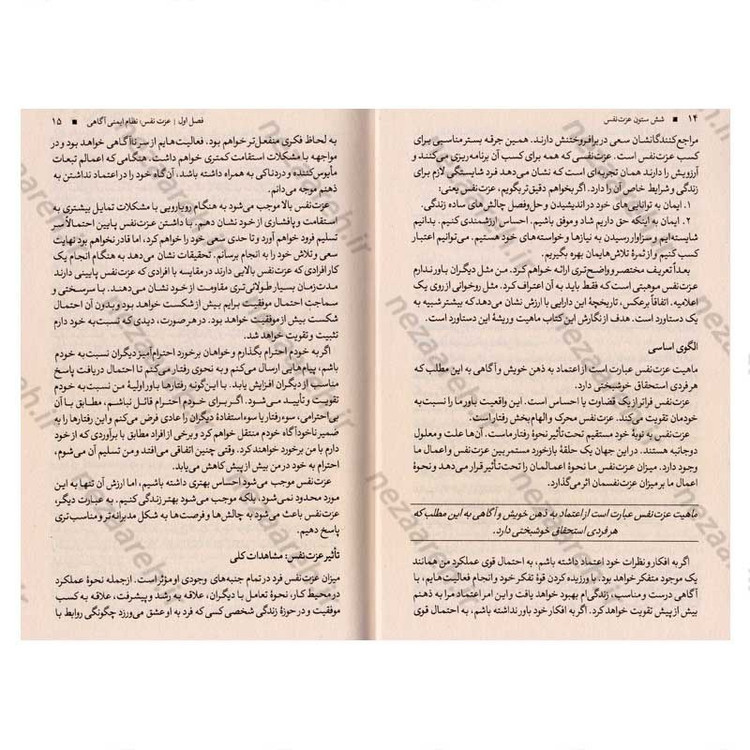 ۱۴ ■ شش ستون عزت‌نفس
مراجع‌کنندگانشان سعی در برافروختنش دارند. همین جرقه بستر مناسبی برای
کسب عزت‌نفس است. عزت‌نفسی که همه برای کسب آن برنامه‌ریزی می‌کنند و
آرزویش را دارند همان تجربه‌ای است که نشان می‌دهد فرد شایستگی لازم برای
زندگی و شرایط خاص آن را دارد. اگر بخواهم دقیق‌تر بگویم، عزت‌نفس یعنی:
۱. ایمان به توانایی‌های خود در اندیشیدن و حل‌وفصل چالش‌های ساده زندگی.
۲. ایمان به اینکه حق داریم شاد و موفق باشیم. احساس ارزشمندی کنیم. بدانیم
شایسته‌ایم و سزاوار رسیدن به نیازها و خواسته‌های خود هستیم. می‌توانیم اعتبار
کسب کنیم و از ثمرهٔ تلاش‌هایمان بهره بگیریم.
بعداً تعریف مختصر و واضح‌تری ارائه خواهم کرد. من مثل دیگران باور ندارم
عزت‌نفس موهبتی است که فقط باید به آن اعتراف کرد. مثل روخوانی از روی یک
اعلامیه. اتفاقاً برعکس، تاریخچهٔ این دارایی با ارزش نشان می‌دهد که بیشتر شبیه به
یک دستاورد است. هدف از نگارش این کتاب ماهیت و ریشهٔ این دستاورد است.
الگوی اساسی
ماهیت عزت‌نفس عبارت است از اعتماد به ذهن خویش و آگاهی به این مطلب که
هر فردی استحقاق خوشبختی دارد.
عزت‌نفس فراتر از یک قضاوت یا احساس است. این واقعیت باور ما را نسبت به
خودمان تقویت می‌کند. عزت‌نفس محرک و الهام‌بخش رفتار است.
عزت‌نفس به نوبهٔ خود مستقیم تحت‌تأثیر نحوهٔ رفتار ماست. آن‌ها علت و معلول
دوجانبه هستند. در این جهان یک حلقهٔ بازخورد مستمر بین عزت‌نفس و اعمال ما
وجود دارد. میزان عزت‌نفس ما نحوهٔ اعمالمان را تحت‌تأثیر قرار می‌دهد و نحوهٔ
اعمال ما بر میزان عزت‌نفسمان اثر می‌گذارد.
ماهیت عزت‌نفس عبارت است از اعتماد به ذهن خویش و آگاهی به این مطلب که
هر فردی استحقاق خوشبختی دارد.
اگر به افکار و نظرات خود اعتماد داشته باشم، به احتمال قوی عملکرد من همانند
یک موجود متفکر خواهد بود. با ورزیده کردن قوهٔ تفکر خود و انجام فعالیت‌هایم، با
آگاهی درست و مناسب، زندگی‌ام بهبود خواهد یافت و این امر اعتماد مرا به ذهنم
بیش از پیش تقویت خواهد کرد. اگر به افکار خود باور نداشته باشم، به احتمال قوی
فصل اول | عزت نفس: نظام ایمنی آگاهی ■ ۱۵
به لحاظ فکری منفعل‌تر خواهم بود، فعالیت‌هایم از سر ناآگاهی خواهد بود و در
مواجهه با مشکلات استقامت کمتری خواهم داشت. هنگامی که اعمالم تبعات
مأیوس‌کننده و دردناکی به همراه داشته باشد، آن‌گاه خود را در اعتماد نداشتن به
ذهنم موجه می‌دانم.
عزت‌نفس بالا موجب می‌شود به هنگام رویارویی با مشکلات تمایل بیشتری به
استقامت و پافشاری از خود نشان دهم. با داشتن عزت‌نفس پایین احتمالاً سر
تسلیم فرود خواهم آورد و تا حدی سعی خود را خواهم کرد، اما قادر نخواهم بود نهایت
سعی و تلاش خود را به انجام برسانم. تحقیقات نشان می‌دهد به هنگام انجام یک
کار افرادی که عزت‌نفس بالایی دارند در مقایسه با افرادی که عزت‌نفس پایینی دارند
مدت‌زمان بسیار طولانی‌تری مقاومت از خود نشان می‌دهند. با سرسختی و
سماجت احتمال موفقیت برایم بیش از شکست خواهد بود و بدون آن احتمال
شکست بیش از موفقیت خواهد بود. در هر صورت، دیدی که نسبت به خود دارم
تثبیت و تقویت خواهد شد.
اگر به خودم احترام بگذارم و خواهان برخورد احترام‌آمیز دیگران نسبت به خودم
باشم، پیام‌هایی ارسال می‌کنم و به نحوی رفتار می‌کنم تا احتمال دریافت پاسخ
مناسب از دیگران افزایش یابد. با این‌گونه رفتارها باور اولیهٔ من نسبت به خودم
تقویت و تأیید می‌شود. اگر برای خودم احترام قائل نباشم، مطابق با آن
بی‌احترامی، سوءرفتار یا سوءاستفادهٔ دیگران را عادی فرض می‌کنم و این رفتارها را به
ضمیر ناخودآگاه خودم منتقل خواهم کرد و برخی از افراد مطابق با برآوردی که از خود
دارم با من برخورد خواهند کرد. وقتی چنین اتفاقی می‌افتد و من تسلیم آن می‌شوم،
احترام به خود در من بیش از پیش کاهش می‌یابد.
عزت‌نفس موجب می‌شود احساس بهتری داشته باشیم، اما ارزش آن تنها به این
مورد محدود نمی‌شود، بلکه موجب می‌شود بهتر زندگی کنیم. به عبارت دیگر،
عزت‌نفس باعث می‌شود به چالش‌ها و فرصت‌ها به شکل مدبرانه‌تر و مناسب‌تری
پاسخ دهیم.
تأثیر عزت‌نفس: مشاهدات کلی
میزان عزت‌نفس فرد در تمام جنبه‌های وجودی او مؤثر است. از جمله نحوهٔ عملکرد
در محیط کار، نحوهٔ تعامل با دیگران، علاقه به رشد و پیشرفت، علاقه به کسب
موفقیت و در حوزهٔ زندگی شخصی کسی که فرد به او عشق می‌ورزد چگونگی روابط با
nezaareh.ir